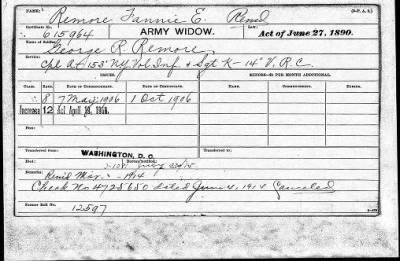 NAME: Remore Fannie E. Remd (3-P. A. 3.)
Certificate No. 615964 ARMY WIDOW. Act of June 27, 1890.
Name of Soldier: George R. Remore
Service: Cpl A. 153" N.Y. Vol Inf & Sgt K- 14" V. R. C.
ISSUES. MINORS—$2 PER MONTH ADDITIONAL.
RATE. DATE OF CERTIFICATE. DATE OF COMMENCEMENT.
8 7 May 1906 1 Oct 1906
Increase 12 Act April 19, 1908.
Transferred from WASHINGTON, D. C. Transferred to
Died: July
Remarks: Remd Mar. - 1914
Check No 4725650 dated June 4, 1914 Canceled
Former Roll No. 12597